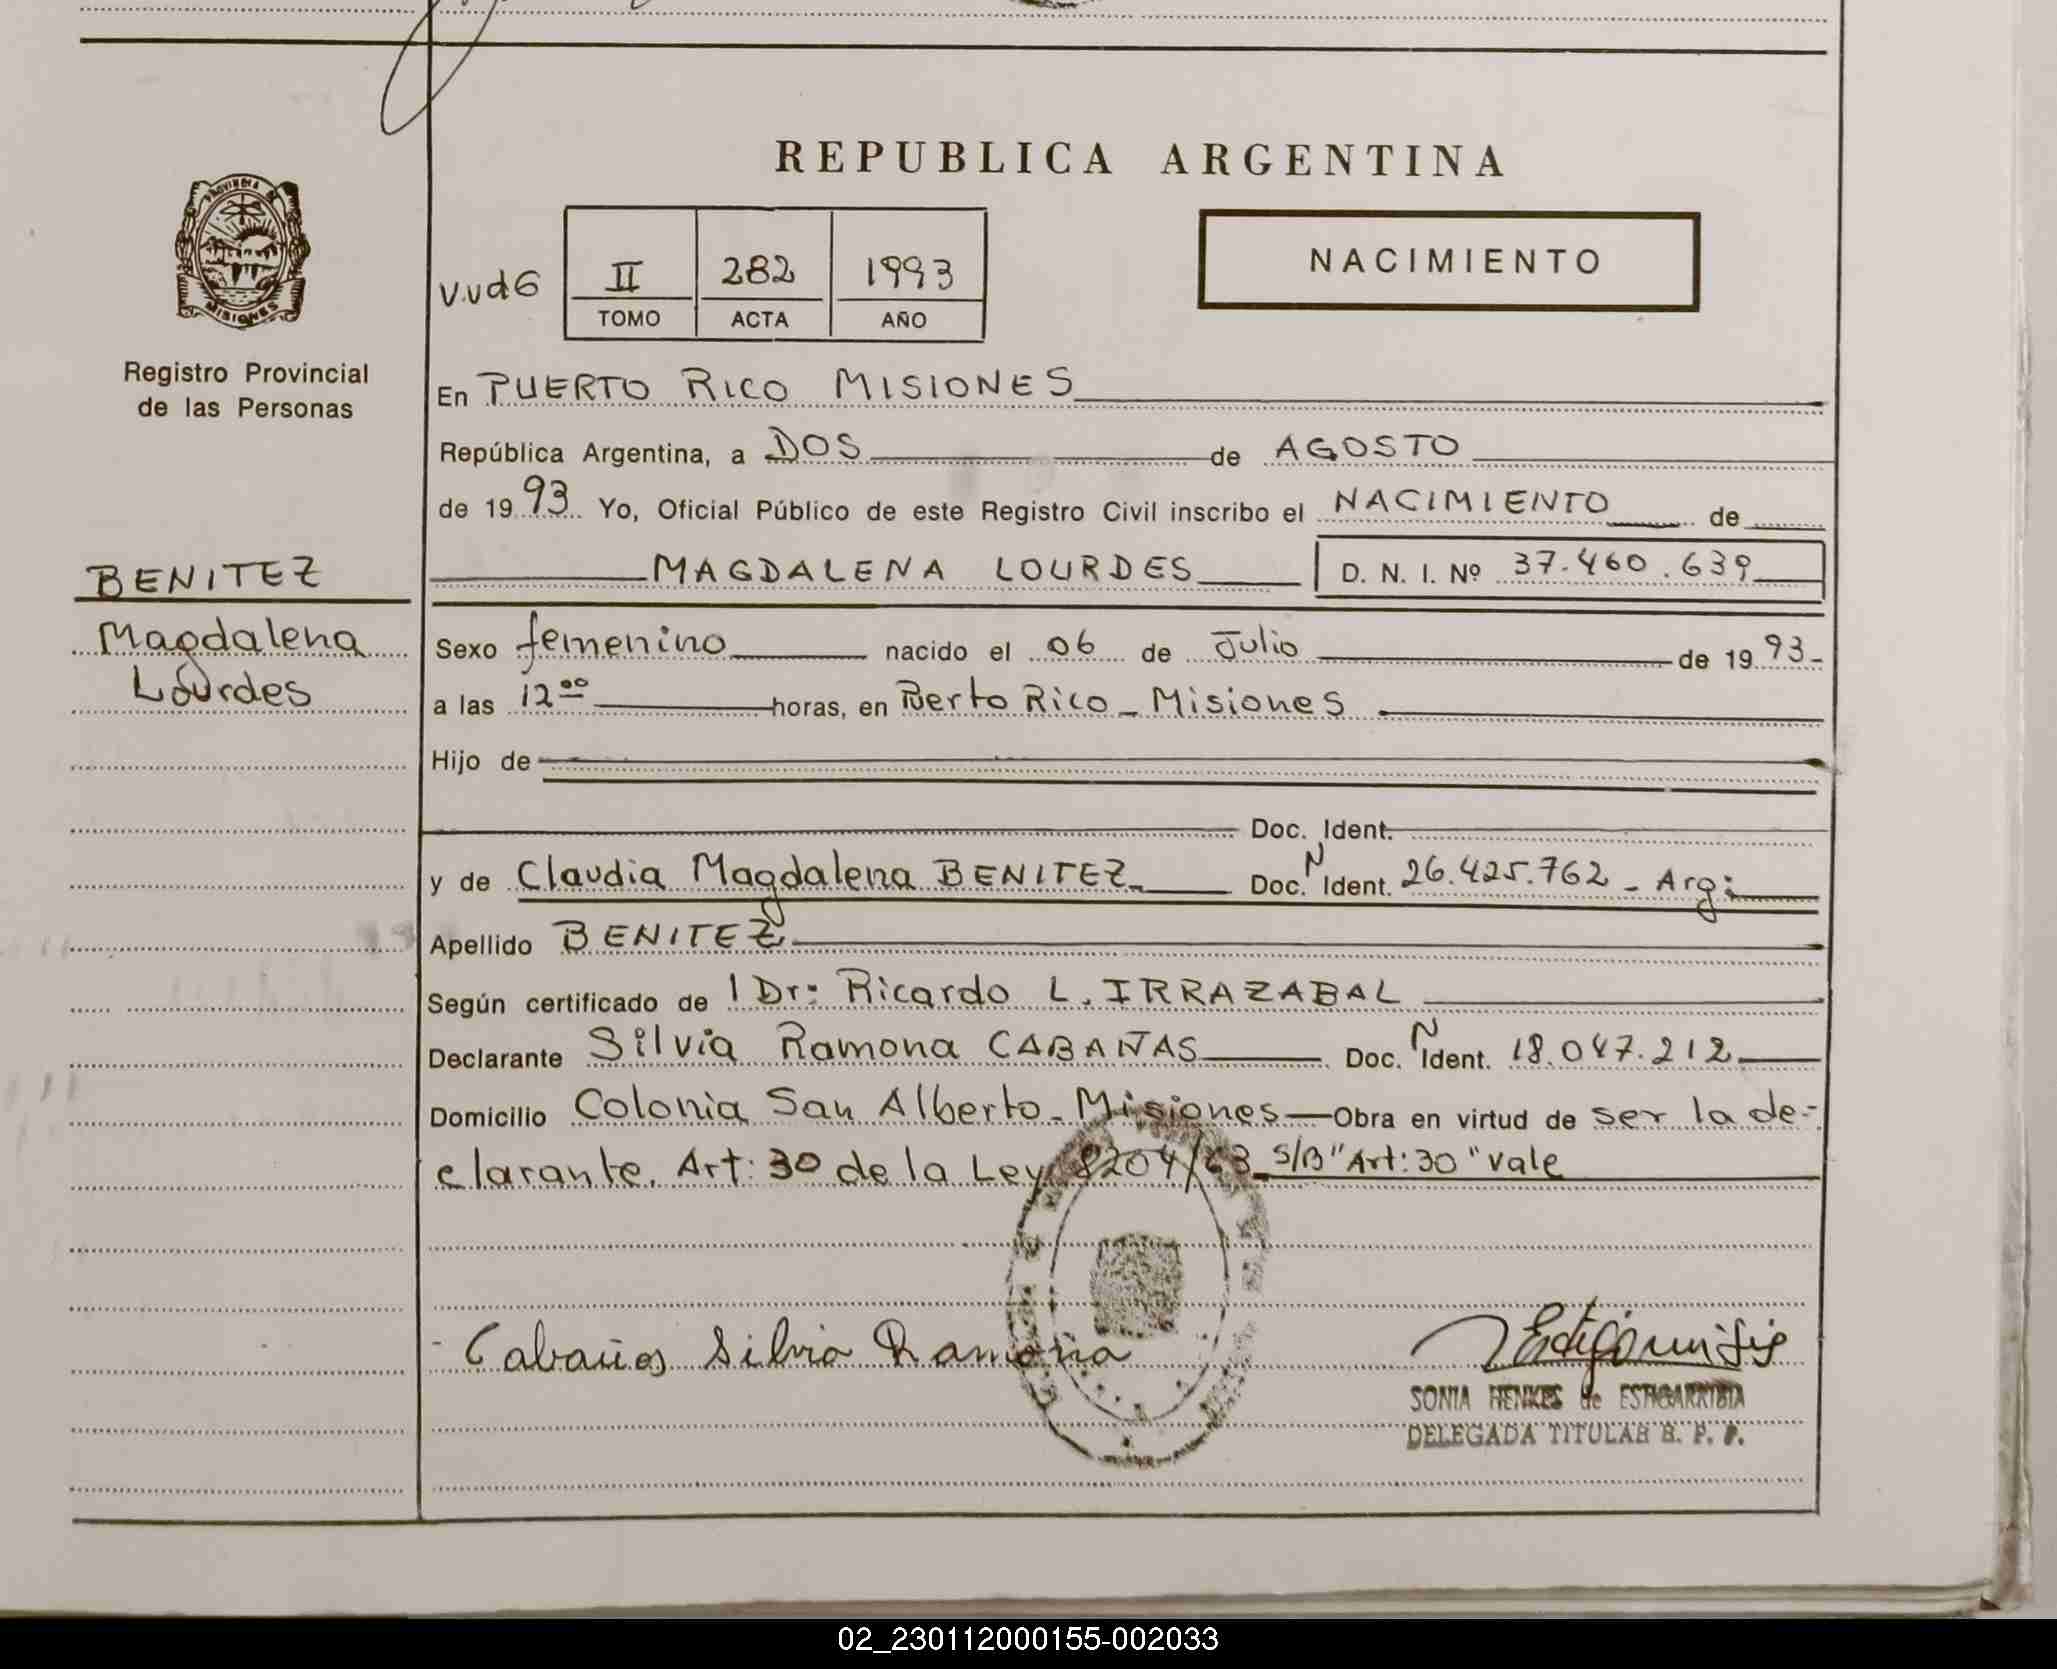 REPUBLICA ARGENTINA
PROVINCIA DE
MISIONES
Registro Provincial
de las Personas
V.ud6
II 282 1993
TOMO ACTA AÑO
NACIMIENTO
En PUERTO RICO MISIONES
República Argentina, a DOS de AGOSTO
de 1993 Yo, Oficial Público de este Registro Civil inscribo el NACIMIENTO de
MAGDALENA LOURDES D. N. I. Nº 37.460.639
BENITEZ
Magdalena
Lourdes
Sexo femenino nacido el 06 de Julio de 1993-
a las 12 ºº horas, en Puerto Rico - Misiones
Hijo de
Doc. Ident.
y de Claudia Magdalena BENITEZ Doc. N Ident. 26.425.762 - Arg:
Apellido BENITEZ
Según certificado de Dr: Ricardo L. IRRAZABAL
Declarante Silvia Ramona CABAÑAS Doc. N Ident. 18.047.212
Domicilio Colonia San Alberto - Misiones - Obra en virtud de ser la de-
clarante. Art: 30 de la Ley 8204/63 S/B "Art: 30" vale
Cabañas Silvia Ramona
SONIA HENKES de ESTIGARRIBIA
DELEGADA TITULAR R. P. P.
02_230112000155-002033